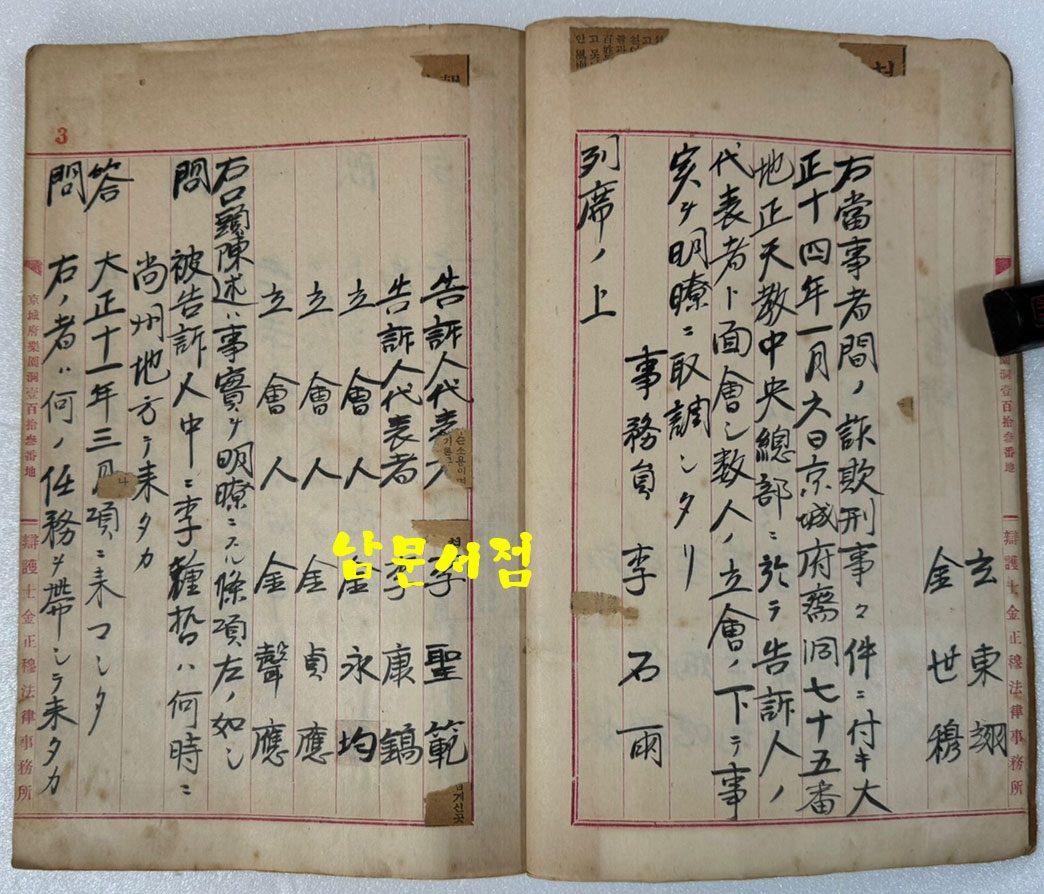 玄東翊
金世穆
右當事者間ノ詐欺刑事々件ニ付キ大
正十四年一月六日京城府齋洞七十五番
地正天教中央總部ニ於テ告訴人ノ
代表者ト面會シ数人ノ立會ノ下デ事
実ヲ明瞭ニ取調シタリ
列席ノ上
事務員 李石雨
告訴人代表人 李聖範
告訴人代表者 李康鎬
立會人 金永均
立會人 金貞應
立會人 金聲應
右口頭陳述ハ事實ヲ明瞭ニスル條項左ノ如シ
問 被告訴人中ニ李鍾哲ハ何時ニ
尚州地方ヲ来タカ
答 大正十一年三月項ニ来マシタ
問 右ノ者ハ何ノ任務ヲ帶シテ来タカ
3
京城府樂園洞壹百拾參番地
辯護士金正穆法律事務所
洞壹百拾參番地
辯護士金正穆法律事務所
남문서점